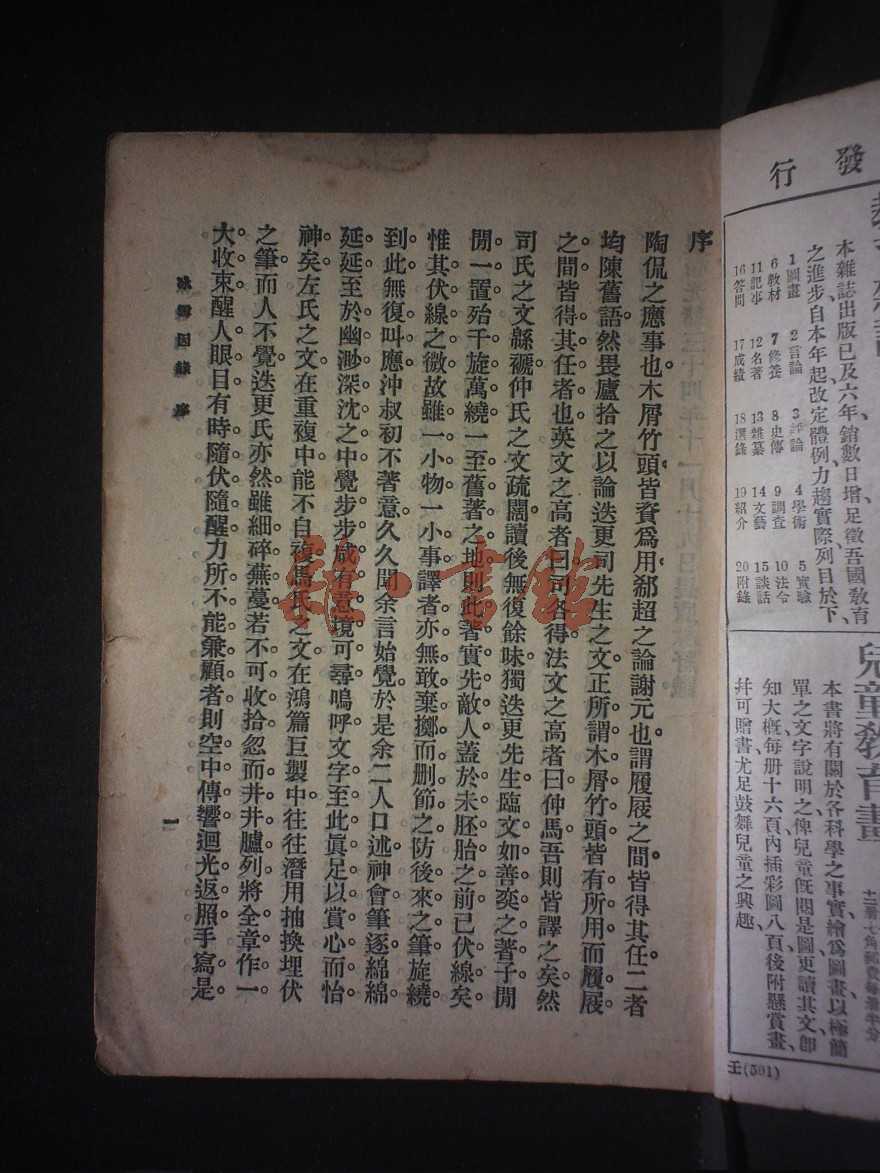 序
陶侃之應事也木屑竹頭皆資爲用郗超之論謝元也謂履屐之間皆得其任二者
均陳舊語然畏廬拾之以論迭更司先生之文正所謂木屑竹頭皆有所用而履屐
之間皆得其任者也英文之高者曰司各得法文之高者曰仲馬吾則皆譯之矣然
司氏之文緜褫仲氏之文疏闊讀後無復餘味獨迭更先生臨文如善奕之著子閒
閒一置殆千旋萬繞一至舊著之地則此著實先敵人蓋於未胚胎之前已伏線矣
惟其伏線之微故雖一小物一小事譯者亦無敢棄擲而删節之防後來之筆旋繞
到此無復叫應沖叔初不著意久久聞余言始覺於是余二人口述神會筆逐綿綿
延延至於幽渺深沈之中覺步步咸有意境可尋嗚呼文字至此眞足以賞心而怡
神矣左氏之文在重複中能不自複馬氏之文在鴻篇巨製中往往潛用抽換埋伏
之筆而人不覺迭更氏亦然雖細碎蕪蔓若不可收拾忽而井井臚列將全章作一
大收束醒人眼目有時隨伏隨醒力所不能兼顧者則空中傳響迴光返照手寫是
冰雪因緣 序
一
發行
本雜誌出版已及六年、銷數日增、足徵吾國敎育
之進步、自本年起改定體例、力趨實際、列目於下、
1圖畫 2言論 3評論 4學術 5實驗
6敎材 7修養 8史傳 9調查 10法令
11記事 12名著 13雜纂 14文藝 15談話
16答問 17成績 18選錄 19紹介 20附錄
兒童敎育畫
本書將有關於各科學之事實繪爲圖畫、以極簡
單之文字說明之、俾兒童旣閱是圖、更讀其文、卽
知大槪、每册十六頁、內插彩圖八頁、後附懸賞畫、
幷可贈書、尤足鼓舞兒童之興趣、
壬(501)
雜·書館